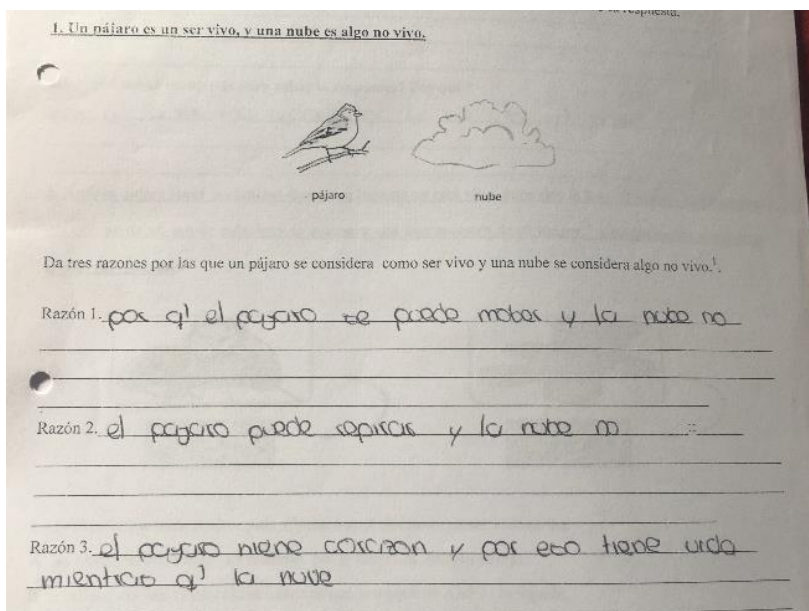 respuesta.
1. Un pájaro es un ser vivo, y una nube es algo no vivo.
pájaro
nube
Da tres razones por las que un pájaro se considera como ser vivo y una nube se considera algo no vivo.¹.
Razón 1. por q' el payaro se puede mober y la nube no
Razón 2. el payaro puede repirar y la nube no
Razón 3. el payaro niene corazon y por eso tiene vida
mientras q' la nuve